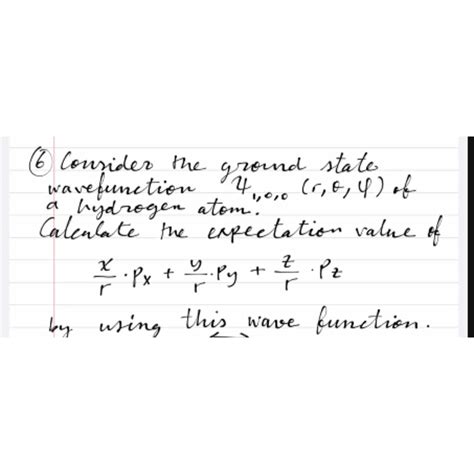 ⑥ Consider the ground state
wavefunction Ψ₁,₀,₀ (r, θ, φ) of
a hydrogen atom.
Calculate the expectation value of
x/r · Px + y/r · Py + z/r · Pz
by using this wave function.